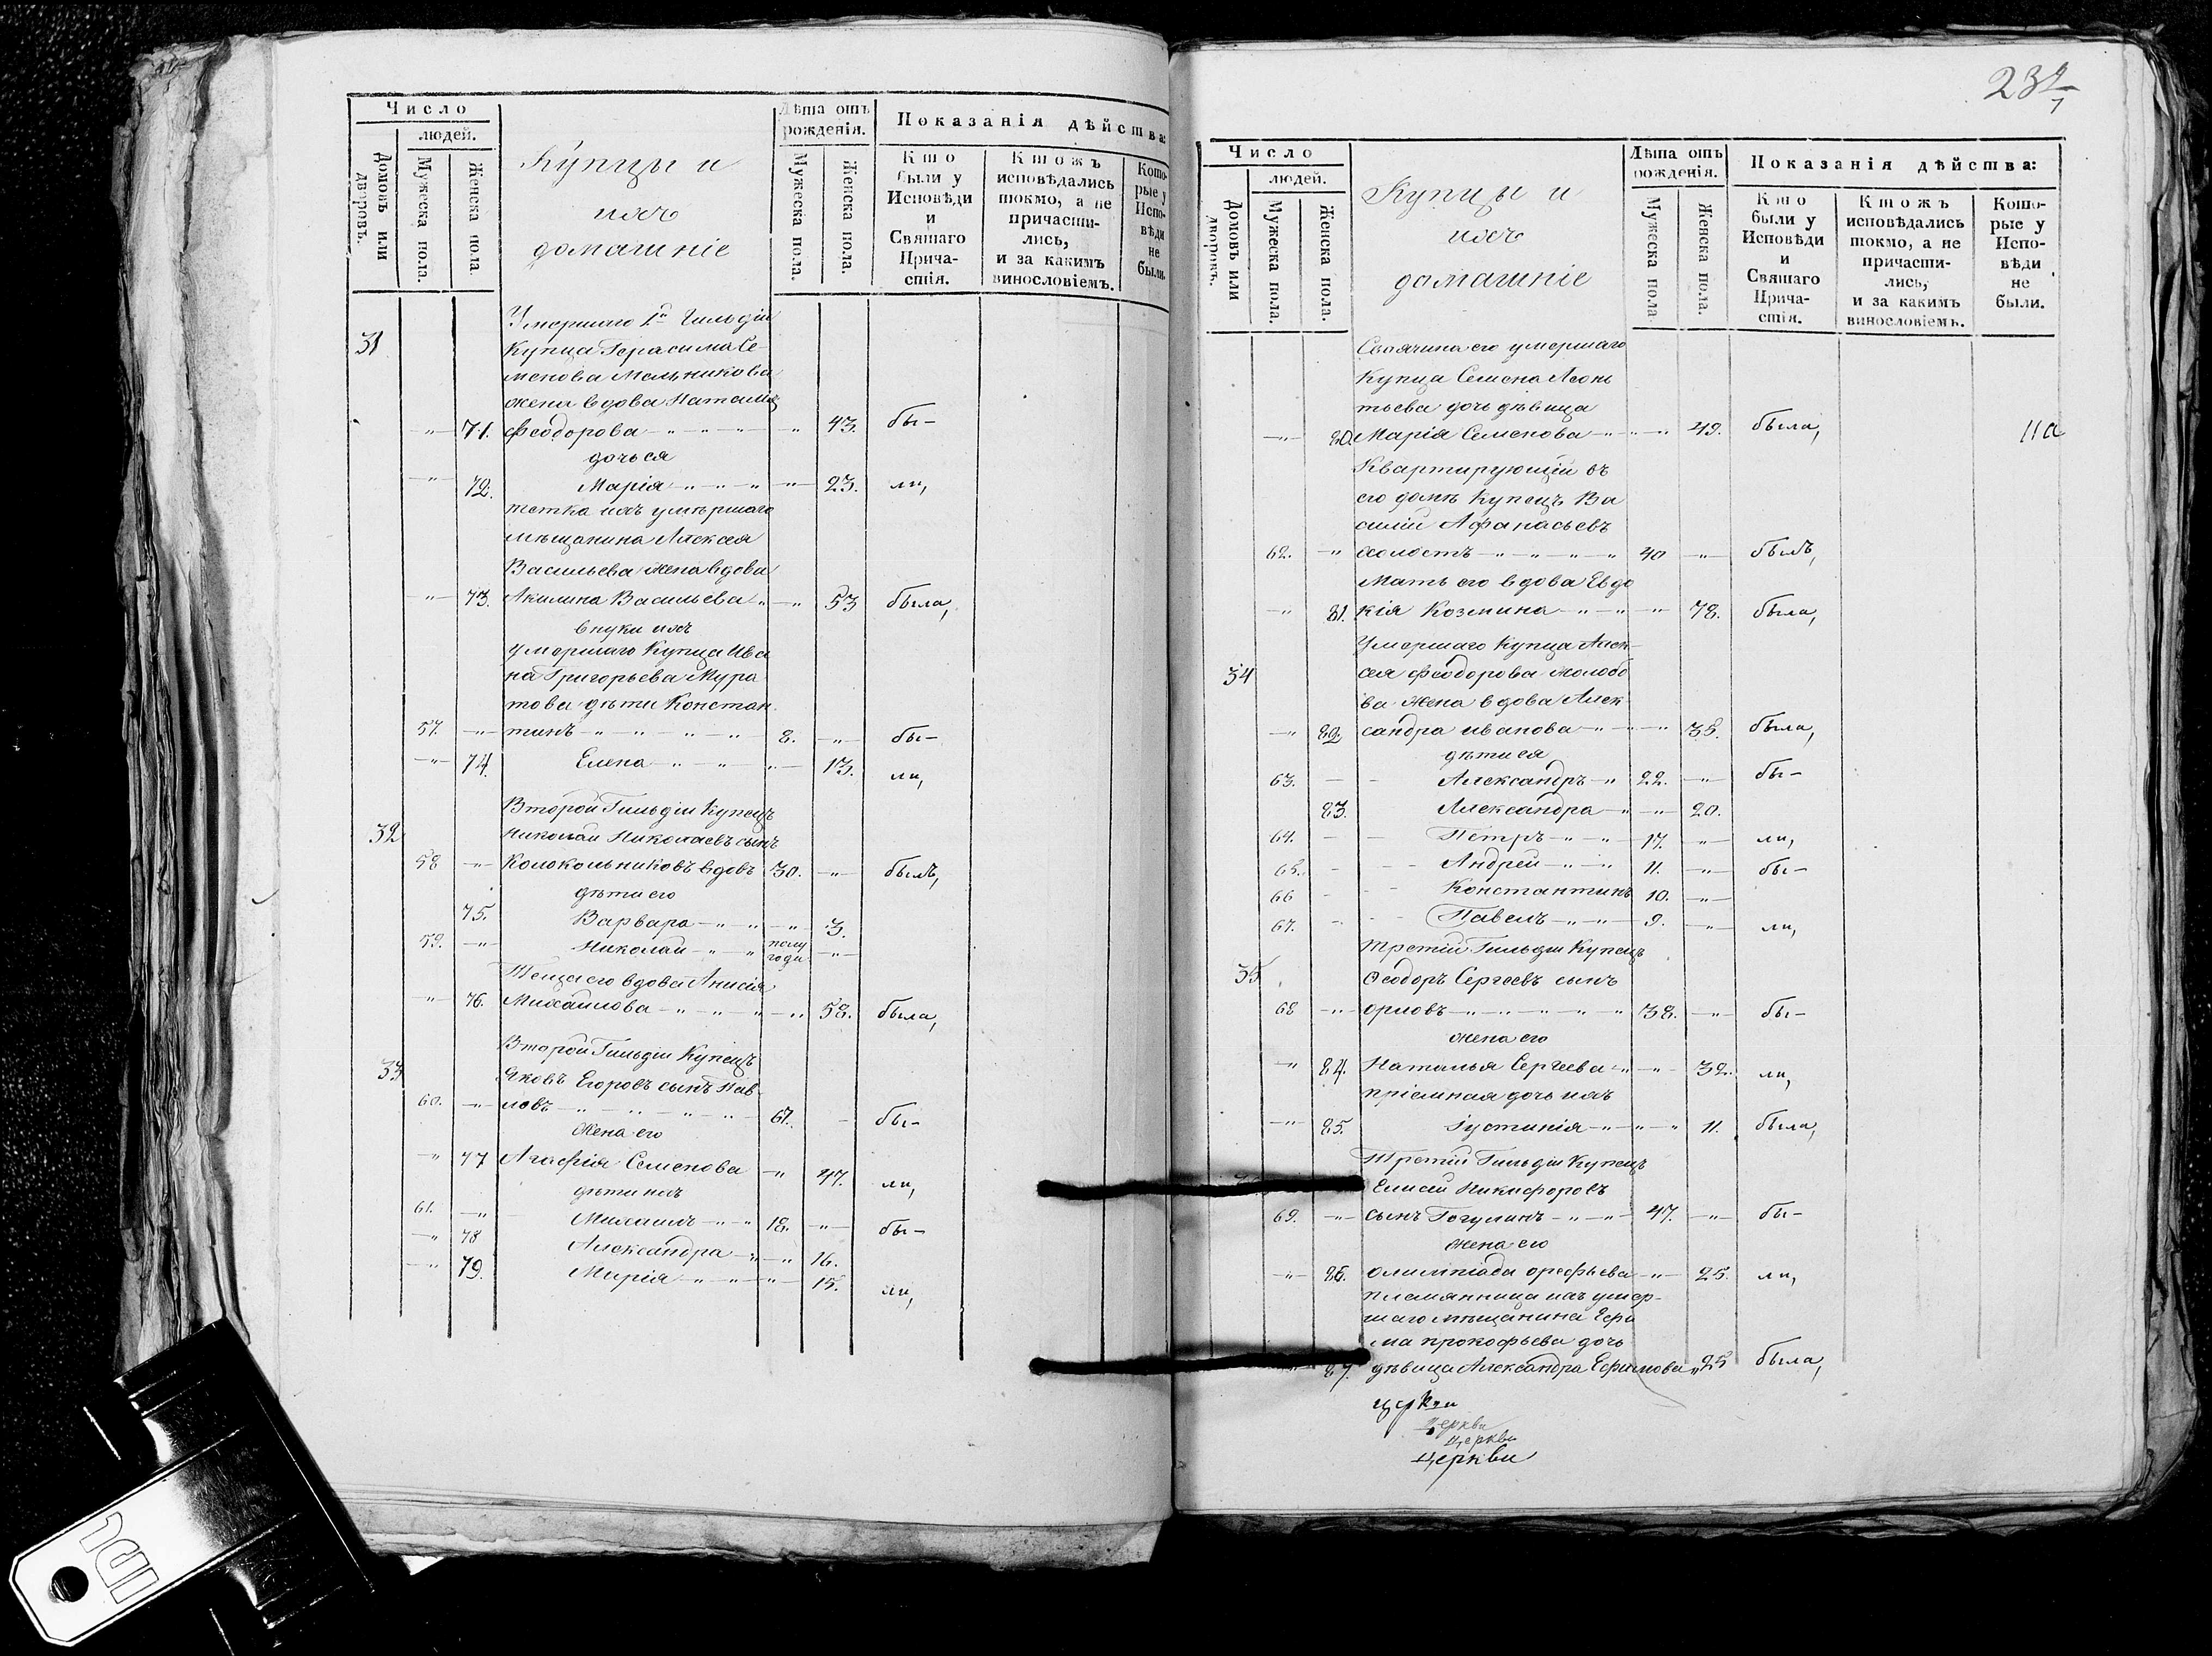 Число
людей.
Домовъ или дворовъ.
Мужеска пола.
Женска пола.
Купцы и
ихъ
домашніе
Лѣта отъ рожденія.
Мужеска пола.
Женска пола.
Показанія дѣйства:
Кто были у Исповѣди и Святаго Причастія.
Ктожъ исповѣдались токмо, а не причастились, и за какимъ винословіемъ.
Которые у Исповѣди не были.
Умершаго 1й Гильдіи
31 Купца Герасима Се-
менова Мельникова
жена вдова Наталія
71. Феодорова 43. бы-
дочь ея
72. Марія 23. ли,
тетка ихъ умершаго
мѣщанина Алексея
Васильева жена вдова
73. Акилина Васильева 53 была,
внуки ихъ
умершаго Купца Ива
на Григорьева Мура
това дѣти Констан
57. тинъ 8. бы-
74. Елена 13. ли,
Второй Гильдіи Купецъ
32 Николай Николаевъ сынъ
58 Колокольниковъ вдовъ 30. былъ,
дѣти его
75. Варвара 3.
59. Николай полу года
Теща его вдова Анисія
76. Михайлова 58. была,
Второй Гильдіи Купецъ
33 Яковъ Егоровъ сынъ Пав-
60. ловъ 67. бы-
Жена его
77 Агафія Семенова 47. ли,
дѣти ихъ
61. Михаилъ 18. бы-
78 Александра 16.
79. Марія 15. ли,
232
7
Число
людей.
Домовъ или дворовъ.
Мужеска пола.
Женска пола.
Купцы и
ихъ
домашніе
Лѣта отъ рожденія.
Мужеска пола.
Женска пола.
Показанія дѣйства:
Кто были у Исповѣди и Святаго Причастія.
Ктожъ исповѣдались токмо, а не причастились, и за какимъ винословіемъ.
Которые у Исповѣди не были.
Своячина его умершаго
Купца Семена Леонь
тьева дочь дѣвица
80. Марія Семенова 49. была,
Квартирующій въ
его домѣ Купецъ Ва
силій Афанасьевъ
62. холостъ 40 былъ,
Мать его вдова Евдо
81. кія Козмина 78. была,
Умершаго Купца Алек-
34 сея Феодорова Молобо
ва жена вдова Алек
82. сандра Иванова 35. была,
дѣти ея
63. Александръ 22. бы-
83. Александра 20.
64. Петръ 17. ли,
65. Андрей 11. бы-
66 Константинъ 10.
67. Павелъ 9. ли,
Третій Гильдіи Купецъ
35 Ѳеодоръ Сергеевъ сынъ
68 Орловъ 38. бы-
жена его
84. Наталья Сергеева 32. ли,
пріемная дочь ихъ
85. Іустинія 11. была,
Третій Гильдіи Купецъ
Елисей Никифоровъ
69. сынъ Гогулинъ 47. бы-
жена его
86. Олимпіада Орефьева 25. ли,
племянница ихъ умер-
шаго мѣщанина Ефи
ма Прокофьева дочь
87. дѣвица Александра Ефимова 25 была,
церкви
церкви
церкви
Церкви